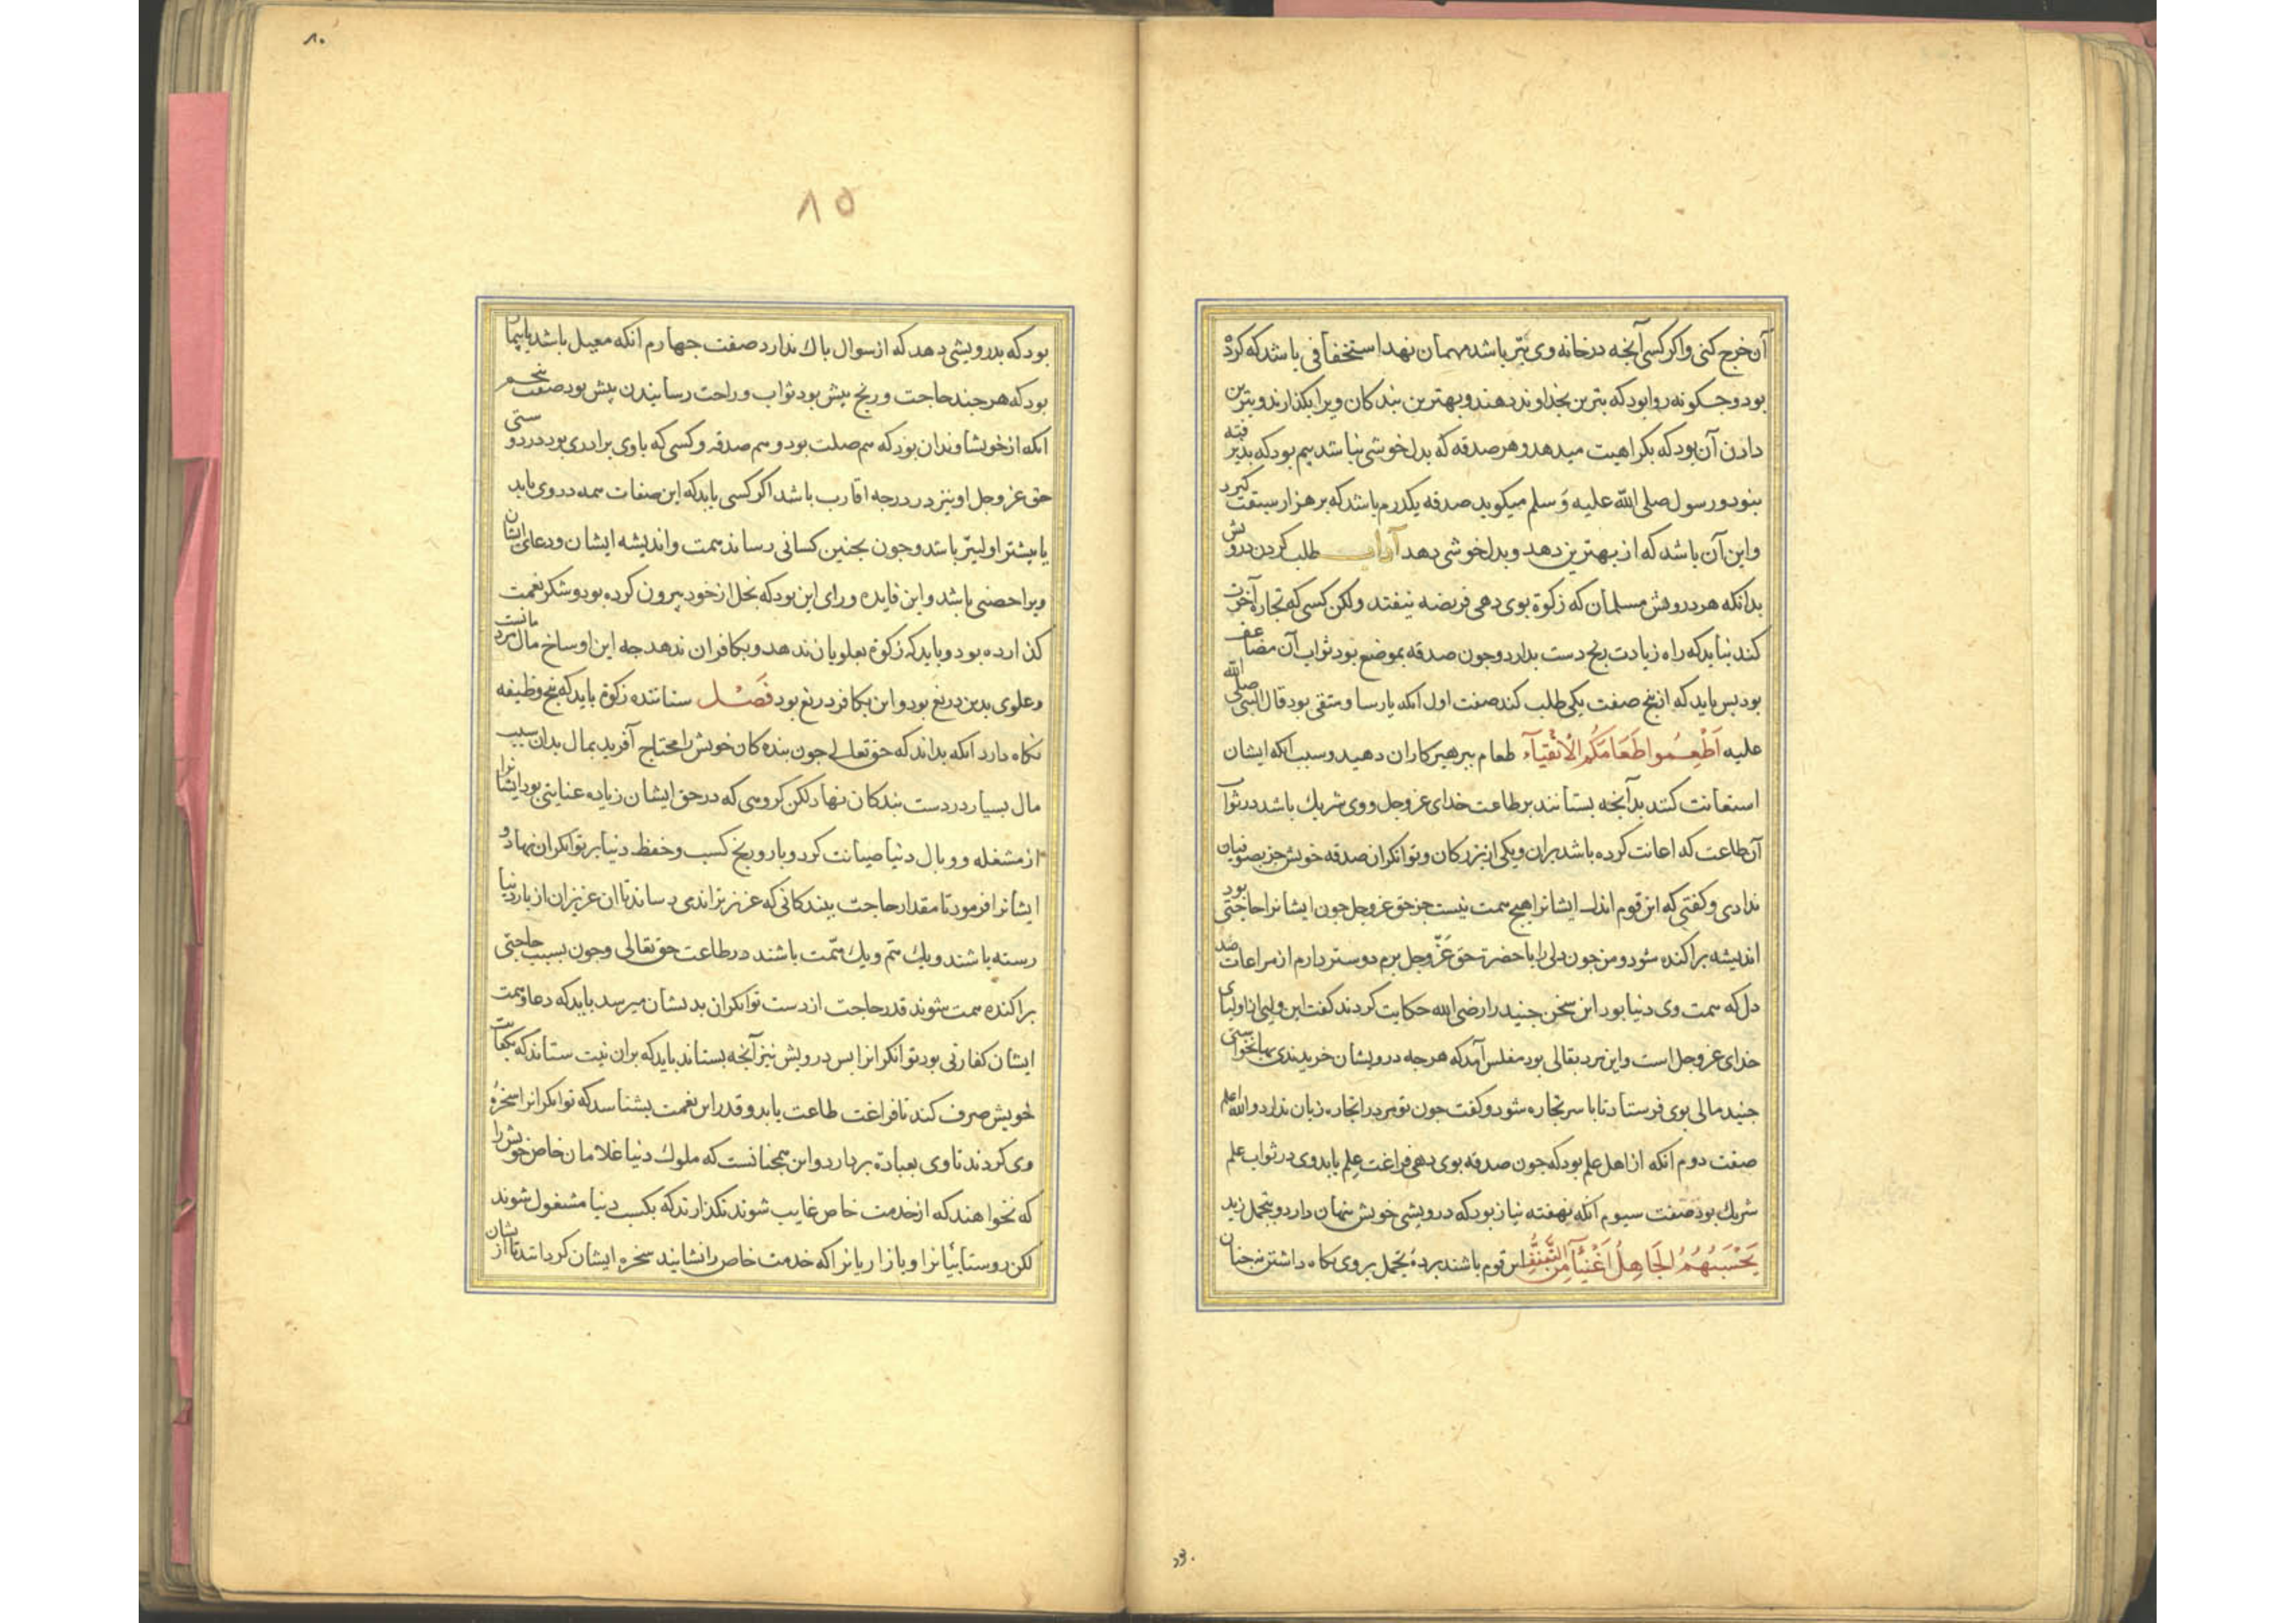 آن خرج کنی و اکر کسی آنجه در خانه وی بتر باشد مهمان نهد استخفافی باشد که کرده
بود و جکونه روا بود که بترین بخداوند دهند و بهترین بندکان ویرا بکذارند و بترین
دادن آن بود که بکراهیت میدهد و هر صدقه که بدل خوشی نباشد بیم بود که بذیرفته
نبود و رسول صلی الله علیه و سلم میکوید صدقه یکدرم باشد که بر هزار سبقت کیرد
و این آن باشد که از بهترین دهد و بدل خوشی دهد آداب طلب کردن درویش
بدانکه هر درویش مسلمان که زکوة بوی دهی فریضه نیفتد ولکن کسی که تجارة آخرت
کند نباید که راه زیادت رنج دست بدارد و جون صدقه بموضع بود ثواب آن مضاعف
بود بس باید که از پنج صفت یکی طلب کند صفت اول انکه پارسا و متقی بود قال النبی صلی الله
علیه اَطْعِمُوا طَعَامَکُم الْاَتْقِیَآء طعام ببرهیزکاران دهید و سبب انکه ایشان
استعانت کنند بدآنجه بستانند بر طاعت خدای عز و جل و وی شریك باشد در ثواب
آن طاعت که اعانت کرده باشد بران و یکی از بزرکان و توانکران صدقه خویش جز بصوفیان
ندادی و کفتی که این قوم اند ایشانرا هیج همت نیست جز حق عز و جل جون ایشانرا حاجتی بود
اندیشه براکنده شود و من جون دلی را با حضرت حق عَزَّ و جل برم دوستر دارم از مراعات صد
دل که همت وی دنیا بود این سخن جنید را رضی الله حکایت کردند کفت این ولیی از اولیای
خدای عز و جل است و این مرد بقالی بود مفلس آمد که هرجه درویشان خریدندی بها نخواستی
جنید مالی بوی فرستاد تا با سر تجاره شود و کفت جون تو مرد را تجاره زیان ندارد والله اعلم
صفت دوم آنکه از اهل علم بود که جون صدقه بوی دهی فراغت علم یابد وی در ثواب علم
شریك بود صفت سیوم آنکه نهفته نیاز بود که درویشی خویش پنهان دارد و بتجمل زید
یَحْسَبُهُمُ الْجَاهِلُ اَغْنِیَآءَ مِنَ التَّعَفُّفِ این قوم باشند بردهٔ تجمل بروی نکاه داشتن نه جنان
بود.
۸۰
۸۵
بود که بدرویشی دهد که از سوال باك ندارد صفت جهارم انکه معیل باشد یا بیمار
بود که هر جند حاجت و رنج بیش بود ثواب و راحت رسانیدن بیش بود صفت بنجم
انکه از خویشاوندان بود که هم صلت بود و هم صدقه و کسی که با وی برادری بود در دوستی
حق عز و جل او نیز در درجه اقارب باشد اکر کسی یابد که این صفات همه در وی یابد
یا بیشتر اولیتر باشد و جون بجنین کسانی رساند همت و اندیشه ایشان و دعای ایشان
ویرا حصنی باشد و این فایده ورای این بود که بخل از خود بیرون کرده بود و شکر نعمت
کذارده بود و باید که زکوة بعلویان ندهد و بکافران ندهد جه این اوساخ مال مردمانست
و علوی بدین دریغ بود و این بکافر دریغ بود فَصْل ستاننده زکوة باید که پنج وظیفه
نکاه دارد انکه بداند که حق تعالی جون بنده کان خویش را محتاج آفرید بمال بدان سبب
مال بسیار در دست بندکان نهاد لکن کروهی که در حق ایشان زیاده عنایتی بود ایشانرا
از مشغله و وبال دنیا صیانت کرد و بار و رنج کسب و حفظ دنیا بر توانکران نهاد و
ایشانرا فرمود تا مقدار حاجت ببندکانی که عزیزتر اندمی رسانند تا ان عزیزان از بار دنیا
رسته باشند و یك هم و یك همّت باشند در طاعت حق تعالی و جون بسبب حاجتی
براکنده همت شوند قدر حاجت از دست توانکران بدیشان میرسد باید که دعا و همت
ایشان کفارتی بود توانکرانرا بس درویش نیز آنجه بستاند باید که بران نیت ستاند که بکفایت
خویش صرف کند تا فراغت طاعت یابد و قدر این نعمت بشناسد که توانکرانرا سخرهٔ
وی کردند تا وی بعبادة بردازد و این همجنانست که ملوك دنیا غلامان خاص خویش را
که نخواهند که از خدمت خاص غایب شوند نکذارند که بکسب دنیا مشغول شوند
لکن روستائیانرا و بازاریانرا که خدمت خاص را نشایند سخره ایشان کرد اند تا از ایشان